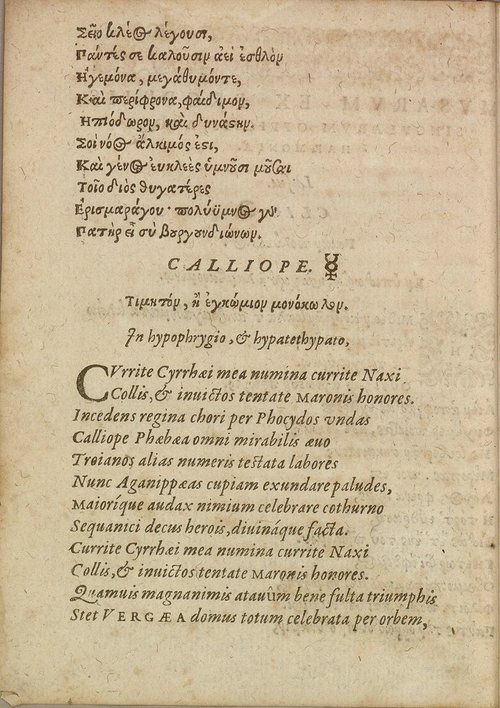 Σεῖο κλέος λέγουσι,
Πάντές σε καλοῦσιν ἀεὶ ἐσθλὸν
Ηγεμόνα, μεγάθυμόντε,
Καὶ περίφρονα, φαίδιμον,
Ηπιόδωρον, καὶ δυνάστην.
Σοὶ νόος ἄλκιμός ἐστι,
Καὶ γένος ἐυκλεὲς ὑμνοῦσι μοῦσαι
Τοῖο διὸς θυγατέρες
Ερισμαράγου· πολύϋμνος γὰρ
Πατὴρ εἶ σὺ βουργουνδιώνων.
CALLIOPE. ☿
Τιμητὸν, ἢ ἐγκώμιον μονόκωλον.
In hypophrygio, & hypatethypato,
CVrrite Cyrrhæi mea numina currite Naxi
Collis, & inuictos tentate MAronis honores.
Incedens regina chori per Phocydos vndas
Calliope Phæbæa omni mirabilis æuo
Troianos alias numeris testata labores
Nunc Aganippæas cupiam exundare paludes,
MAioríque audax nimium celebrare cothurno
Sequanici decus herois, diuináque facta.
Currite Cyrrhæi mea numina currite Naxi
Collis, & inuictos tentate MAronis honores.
Quamuis magnanimis atauûm bene fulta triumphis
Stet VERGÆA domus totum celebrata per orbem,